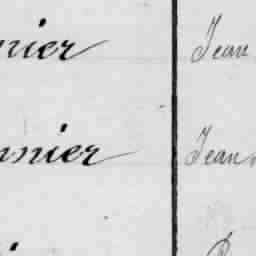 nier Jean
nnier Jean